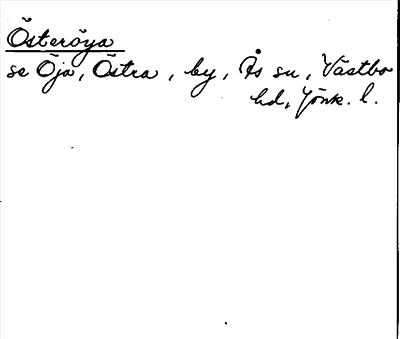 Österöya
se Öja, Östra, by, Ås sn, Västbo
hd, Jönk. l.